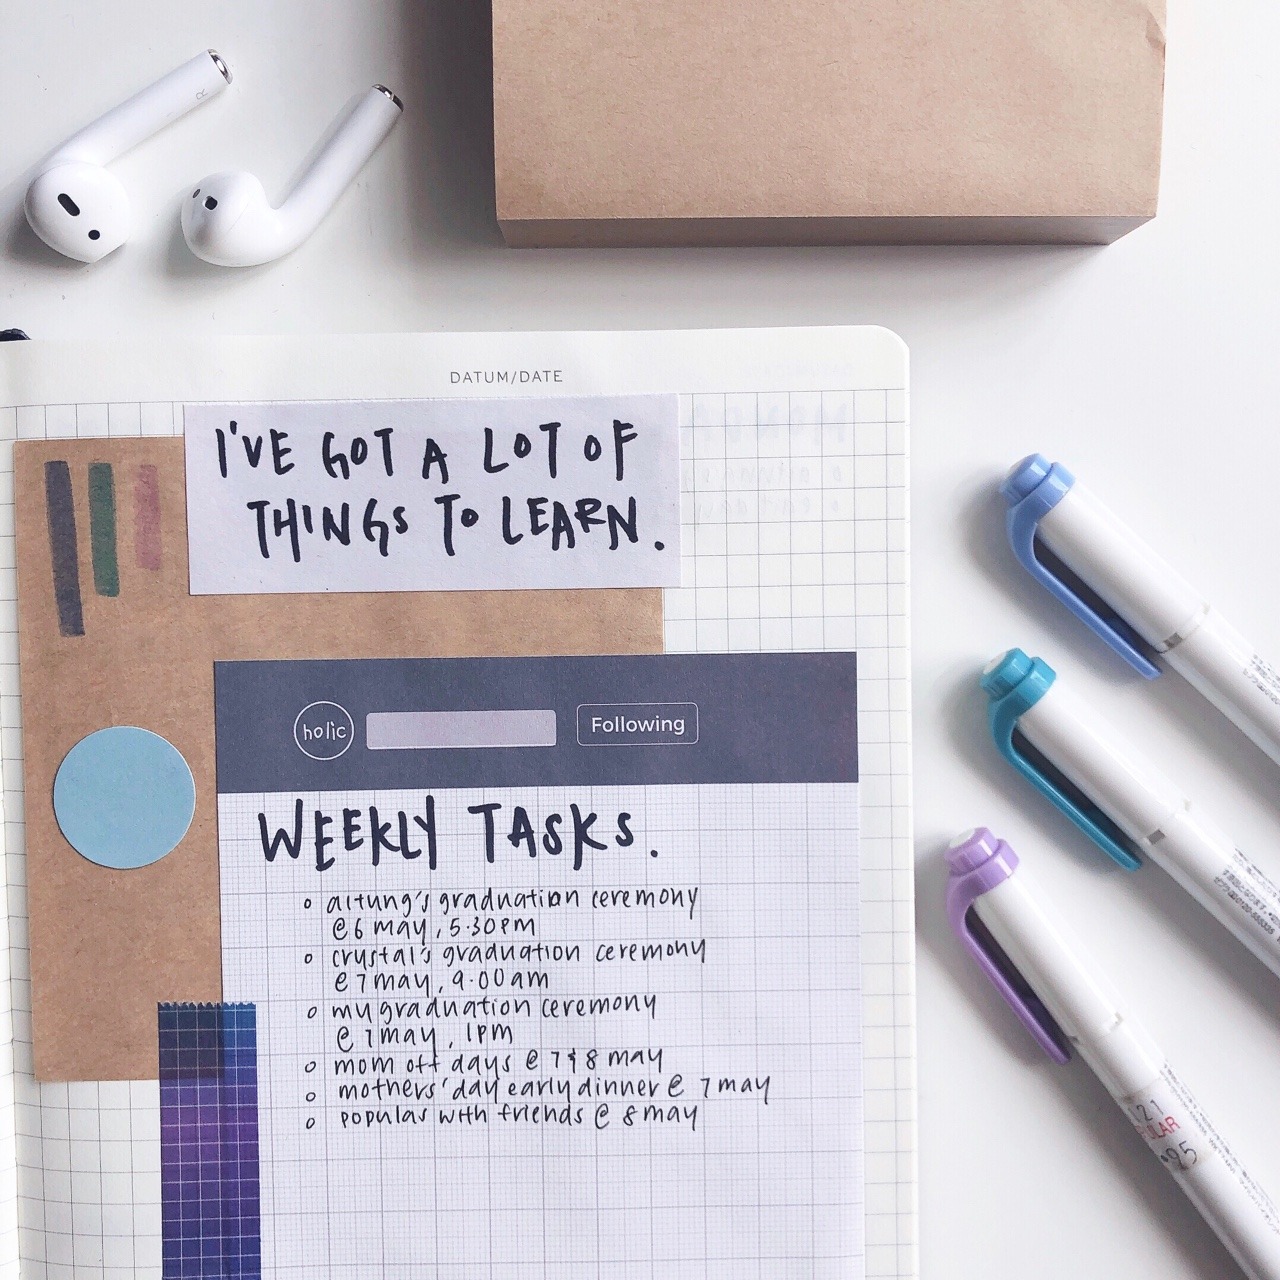 R
DATUM/DATE
I'VE GOT A LOT OF
THINGS TO LEARN.
holic
Following
WEEKLY TASKS.
aitung's graduation ceremony
@ 6 may, 5.30pm
crystal's graduation ceremony
@ 7 may, 9.00am
my graduation ceremony
@ 7 may, 1pm
mom off days @ 7 & 8 may
mothers' day early dinner @ 7 may
popular with friends @ 8 may